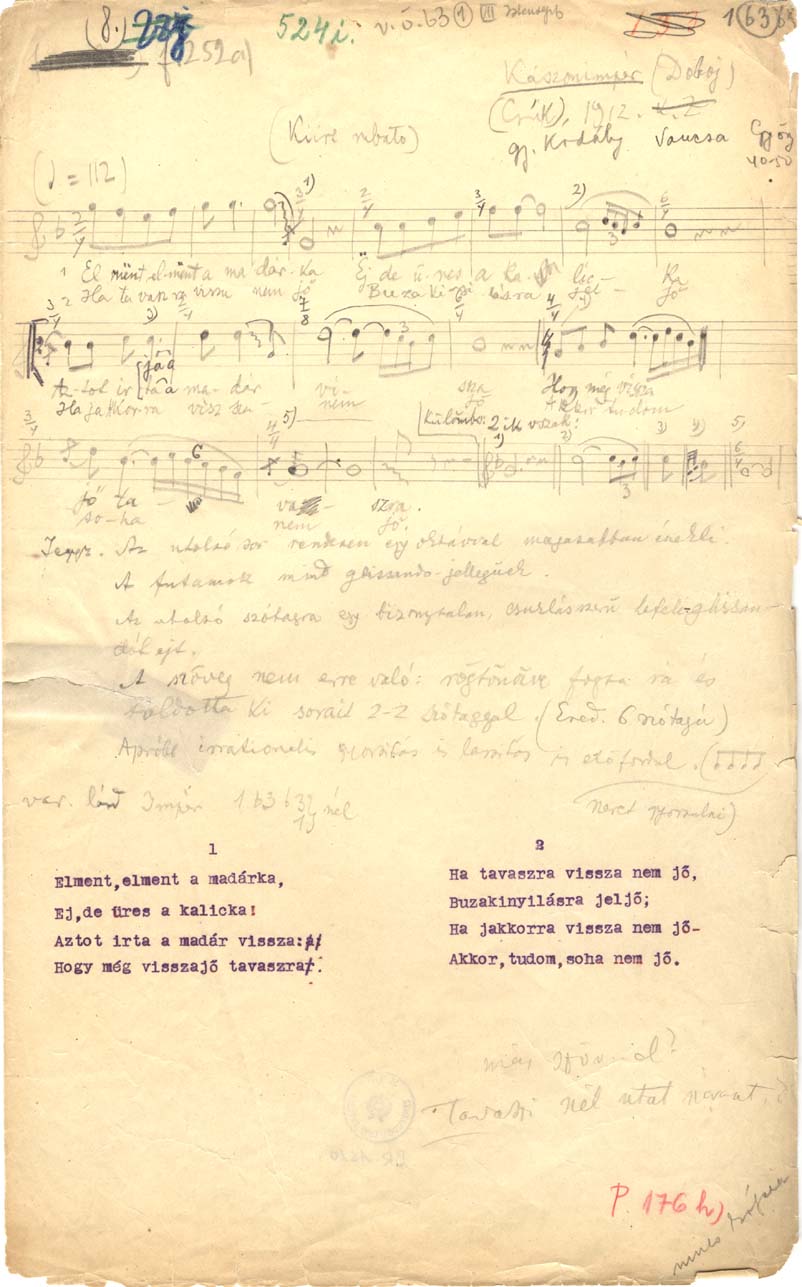 (8.) 524 i. v.ö. 63 1 III 163 63
(252a)
Kászonimpér (Doboj)
(Csík), 1912.
gj. Kodály Vancsa György
40-50
(♩ = 112)
1 El mënt el-mënt a ma dár-ka Ej de ü-res a ka- lic- ka
2 Ha ta vasz ra vissza nem jő Buza ki- nyi lásra jel- jő
Az-tot ir- ta a ma-dár vi- sza Hogy még vissza
Ha jakkorra visz sza- nem jő Akkor tudom
Különbs: 2ik vszak:
jő ta- va- szra.
so-ha nem jő.
Jegyz. Az utolsó sor rendesen egy oktávval magasabban énekli.
A futamok mind glissando-jellegüek.
Az utolsó szótagra egy bizonytalan, csuklásszerű lefelé glissan-
dót ejt.
A szöveg nem erre való: rögtönözve fogta rá és
toldotta ki sorait 2-2 szótaggal. (Ered. 6 szótagú)
Apróbb irrationalis gyorsitás és lassitás is előfordul.
var. lásd Impér 163 63 nél
1
Elment,elment a madárka,
Ej,de üres a kalicka!
Aztot irta a madár vissza:
Hogy még visszajő tavaszra.
2
Ha tavaszra vissza nem jő,
Buzakinyilásra jeljő;
Ha jakkorra vissza nem jő-
Akkor,tudom,soha nem jő.
P. 176 h)
nincs